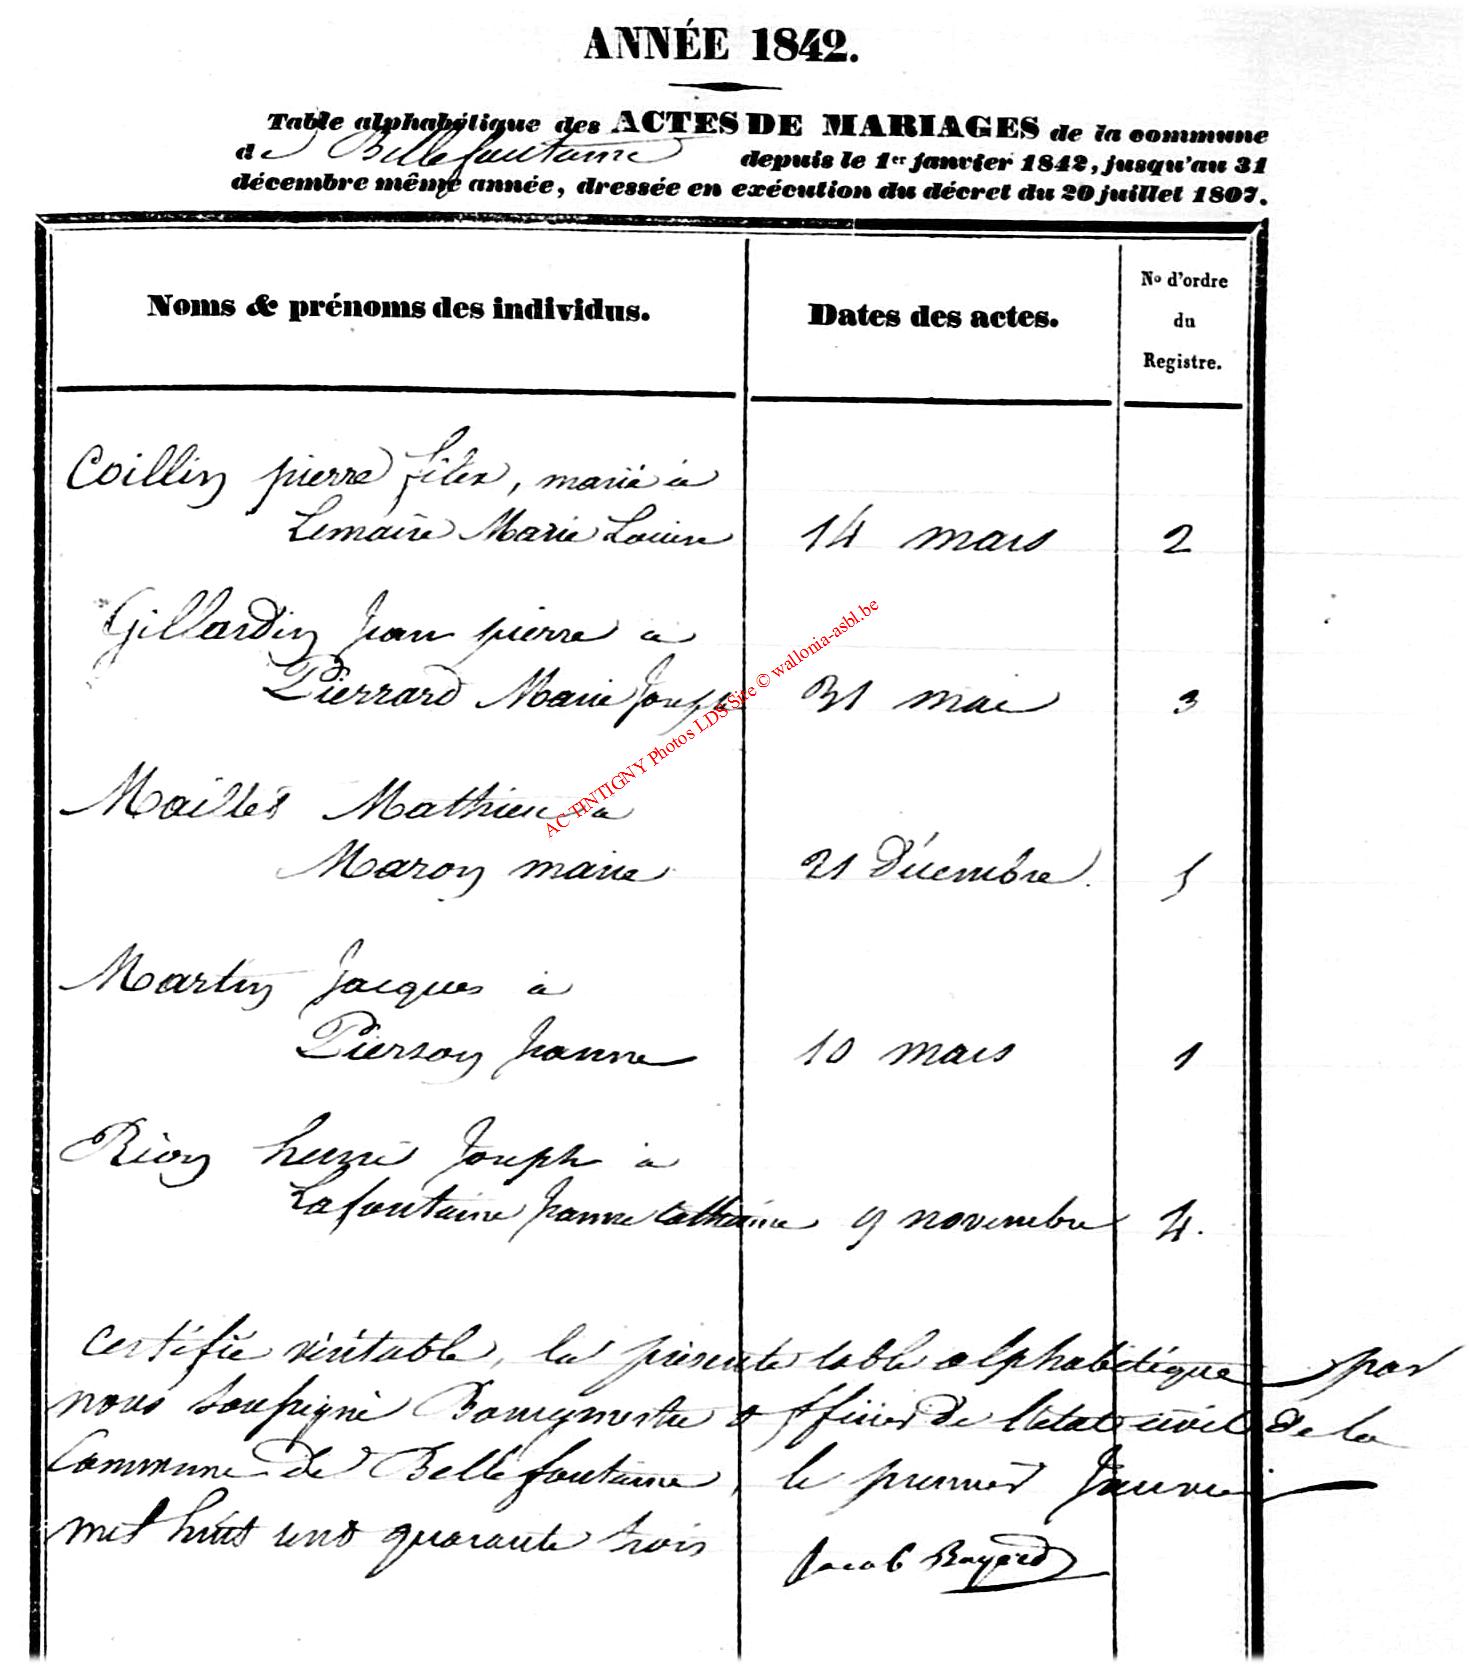 ANNÉE 1842.
Table alphabétique des ACTES DE MARIAGES de la commune
de Bellefontaine depuis le 1er janvier 1842, jusqu'au 31
décembre même année, dressée en exécution du décret du 20 juillet 1807.
Noms & prénoms des individus.
Dates des actes.
No d'ordre
du
Registre.
Coillin pierre félix, marié à
Lemaire Marie Louise 14 mars 2
Gillardin Jean pierre à
Pierrard Marie Josephe 31 mai 3
Maillet Mathieu à
Maron marie 21 Décembre 5
Martin Jacques à
Pierson Jeanne 10 mars 1
Rion henri Joseph à
Lafontaine Jeanne Catherine 9 novembre 4.
Certifié véritable, la présente table alphabétique par
nous soussigné Bourgmestre officier de l'état civil de la
Commune de Bellefontaine, le premier Janvier
mil huit cent quarante trois
Jacob Bayard
AC TINTIGNY Photos LDS Site © wallonia-asbl.be